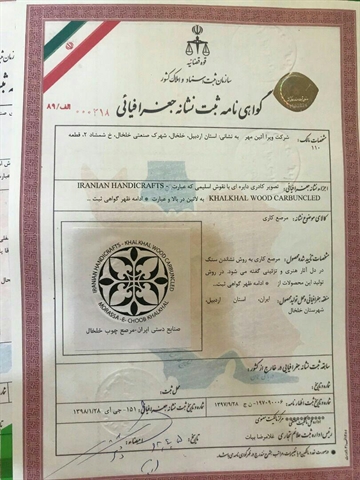 قوه قضائیه
سازمان ثبت اسناد و املاک کشور
گواهی نامه ثبت نشانه جغرافیائی
الف/۸۹
۰۰۰۲۱۸
مشخصات مالک: شرکت ویرا آئین مهر به نشانی، استان اردبیل، خلخال، شهرک صنعتی خلخال، خ شمشاد ۲، قطعه
۱۱۰
اجزاء نشانه جغرافیائی: تصویر کادری دایره ای با نقوش اسلیمی که عبارت IRANIAN HANDICRAFTS -
KHALKHAL WOOD CARBUNCLED به لاتین در بالا و عبارت * ادامه ظهر گواهی ثبت ...
کالای موضوع نشانه: مرصع کاری
مشخصات تأیید شده محصول: مرصع کاری به روش نشاندن سنگ
در دل آثار هنری و تزئینی گفته می شود. در روش
تولید این محصولات از * ادامه ظهر گواهی ثبت...
منطقه جغرافیایی محل تولید محصول: ایران، استان اردبیل،
شهرستان خلخال
IRANIAN HANDICRAFTS - KHALKHAL WOOD CARBUNCLED
MORASSA-E-CHOOB KHALKHAL
صنایع دستی ایران-مرصع چوب خلخال
سابقه ثبت نشانه جغرافیایی در خارج از کشور:
شماره و تاریخ:
محل ثبت:
شماره و تاریخ ثبت نشانه جغرافیایی: ۱۵۱- جی آی ۱۳۹۸/۱/۲۸
رئیس اداره ثبت علائم تجاری غلامرضا بیات